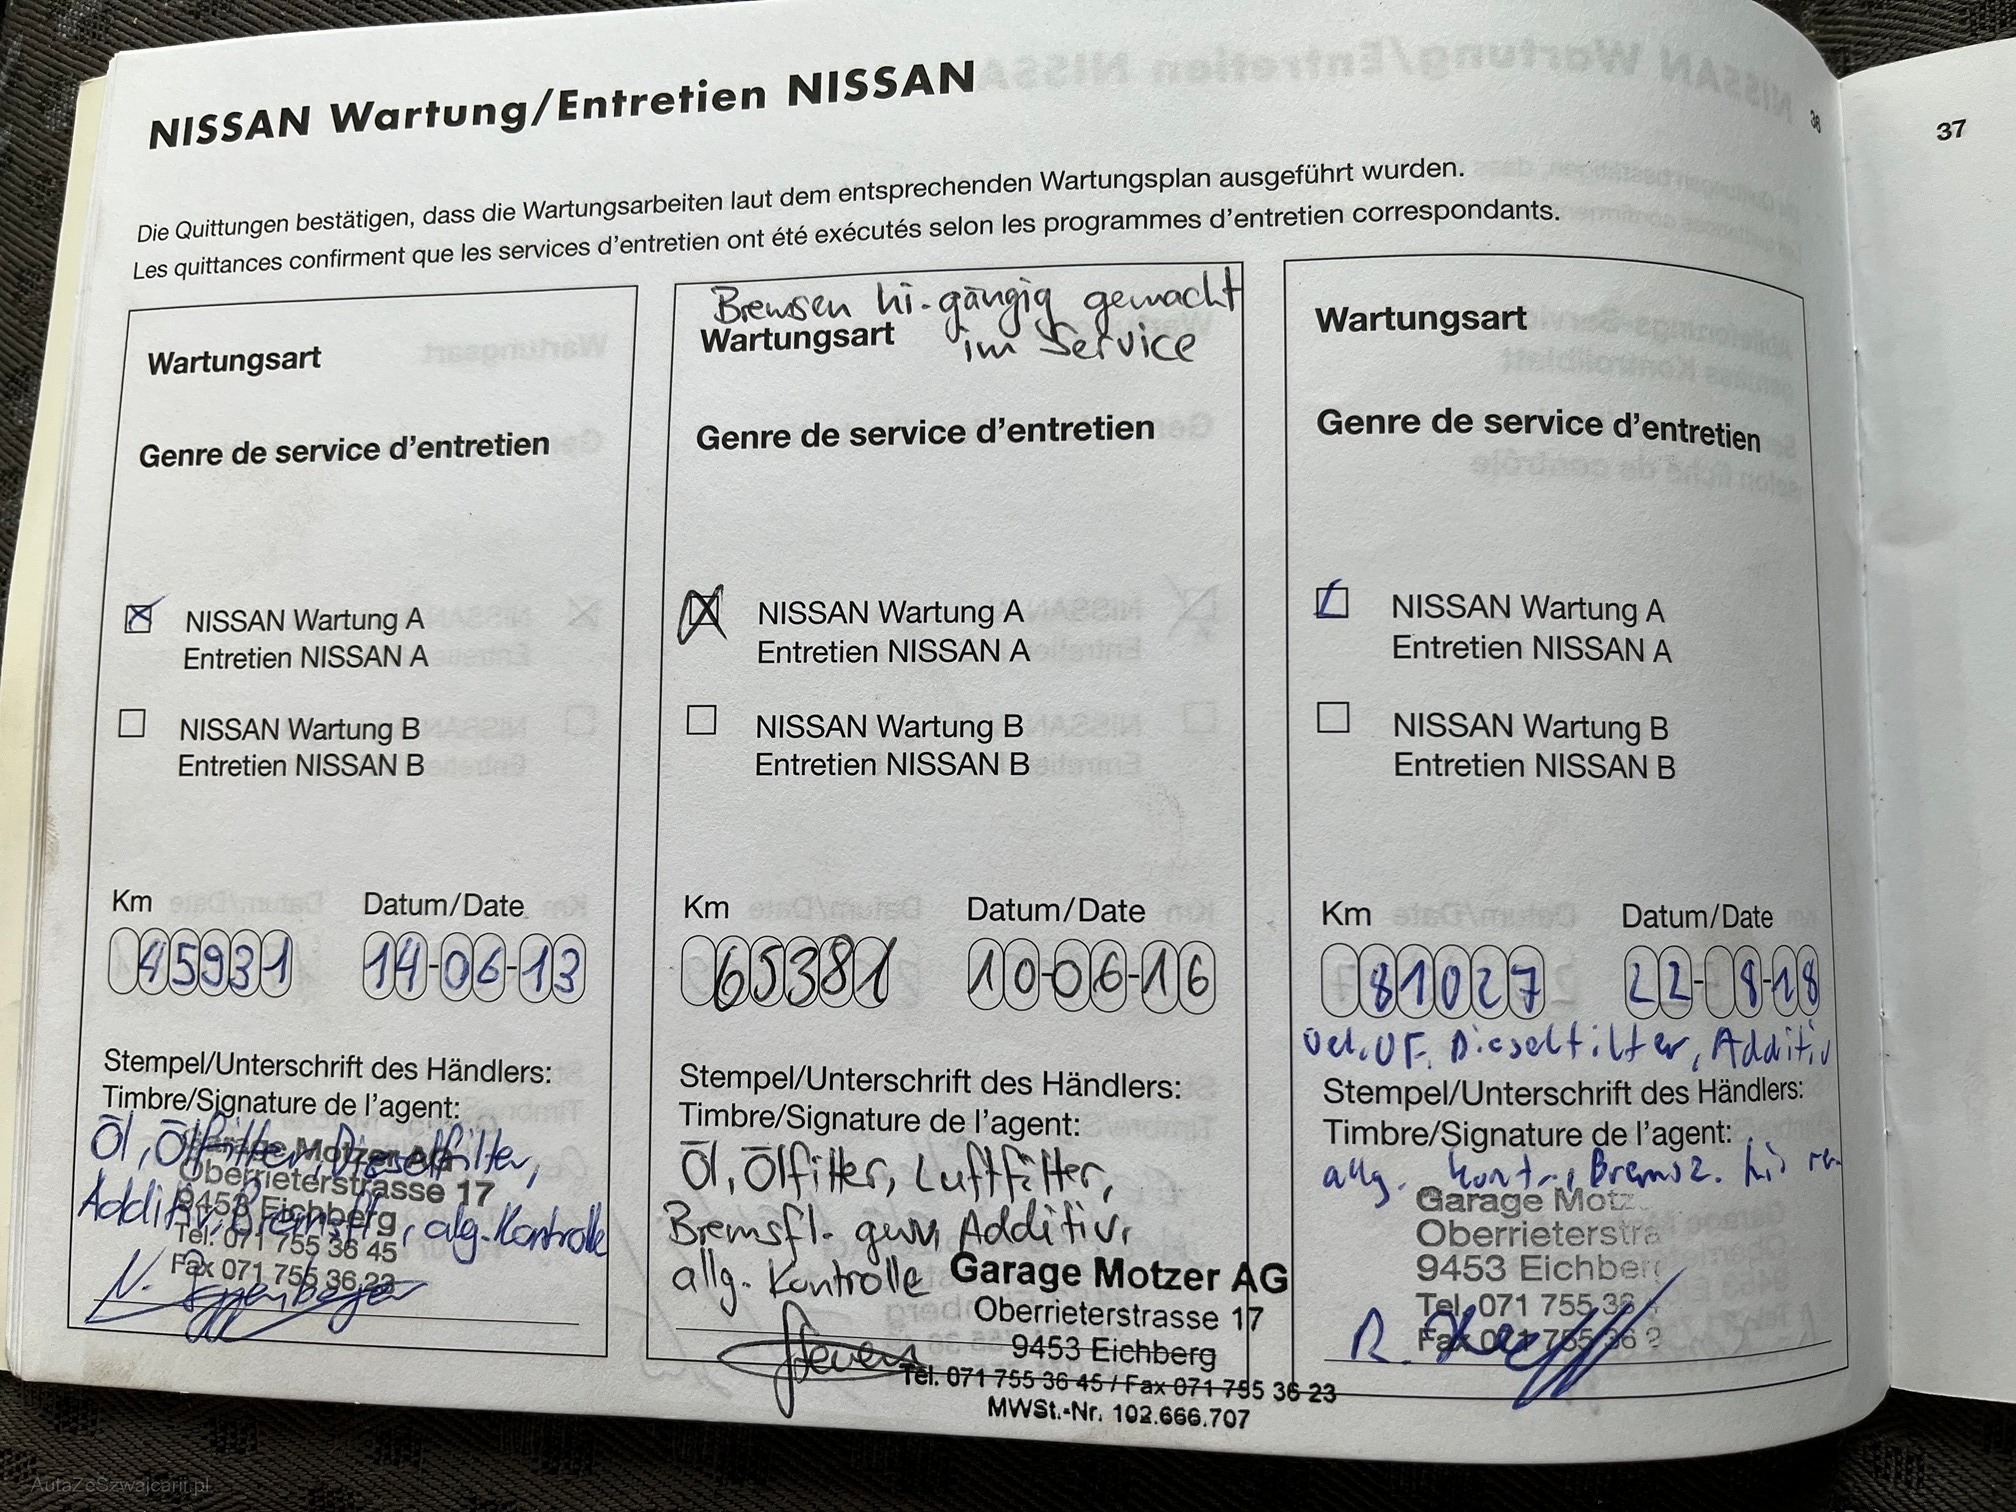 NISSAN Wartung/Entretien NISSAN
37
Die Quittungen bestätigen, dass die Wartungsarbeiten laut dem entsprechenden Wartungsplan ausgeführt wurden.
Les quittances confirment que les services d'entretien ont été exécutés selon les programmes d'entretien correspondants.
Wartungsart
Genre de service d'entretien
NISSAN Wartung A
Entretien NISSAN A
NISSAN Wartung B
Entretien NISSAN B
Km Datum/Date
45931 14-06-13
Stempel/Unterschrift des Händlers:
Timbre/Signature de l'agent:
Öl, Ölfilter, Dieselfilter,
Additiv, Bremsfl., allg. Kontrolle
Garage Motzer AG
Oberrieterstrasse 17
9453 Eichberg
Tel. 071 755 36 45
Fax 071 755 36 23
Bremsen hi. gängig gemacht
im Service
Wartungsart
Genre de service d'entretien
NISSAN Wartung A
Entretien NISSAN A
NISSAN Wartung B
Entretien NISSAN B
Km Datum/Date
65381 10-06-16
Stempel/Unterschrift des Händlers:
Timbre/Signature de l'agent:
Öl, Ölfilter, Luftfilter,
Bremsfl. gew, Additiv,
allg. Kontrolle
Garage Motzer AG
Oberrieterstrasse 17
9453 Eichberg
Tel. 071 755 36 45 / Fax 071 755 36 23
MWSt.-Nr. 102.666.707
Wartungsart
Genre de service d'entretien
NISSAN Wartung A
Entretien NISSAN A
NISSAN Wartung B
Entretien NISSAN B
Km Datum/Date
81027 22-8-18
Dieselfilter, Additiv
Stempel/Unterschrift des Händlers:
Timbre/Signature de l'agent:
allg. Kontr., Bremsz. hi
Garage Motz
Oberrieterstra
9453 Eichber
Tel. 071 755 36
Fax 071 755 36 2
AutaZeSzwajcarii.pl